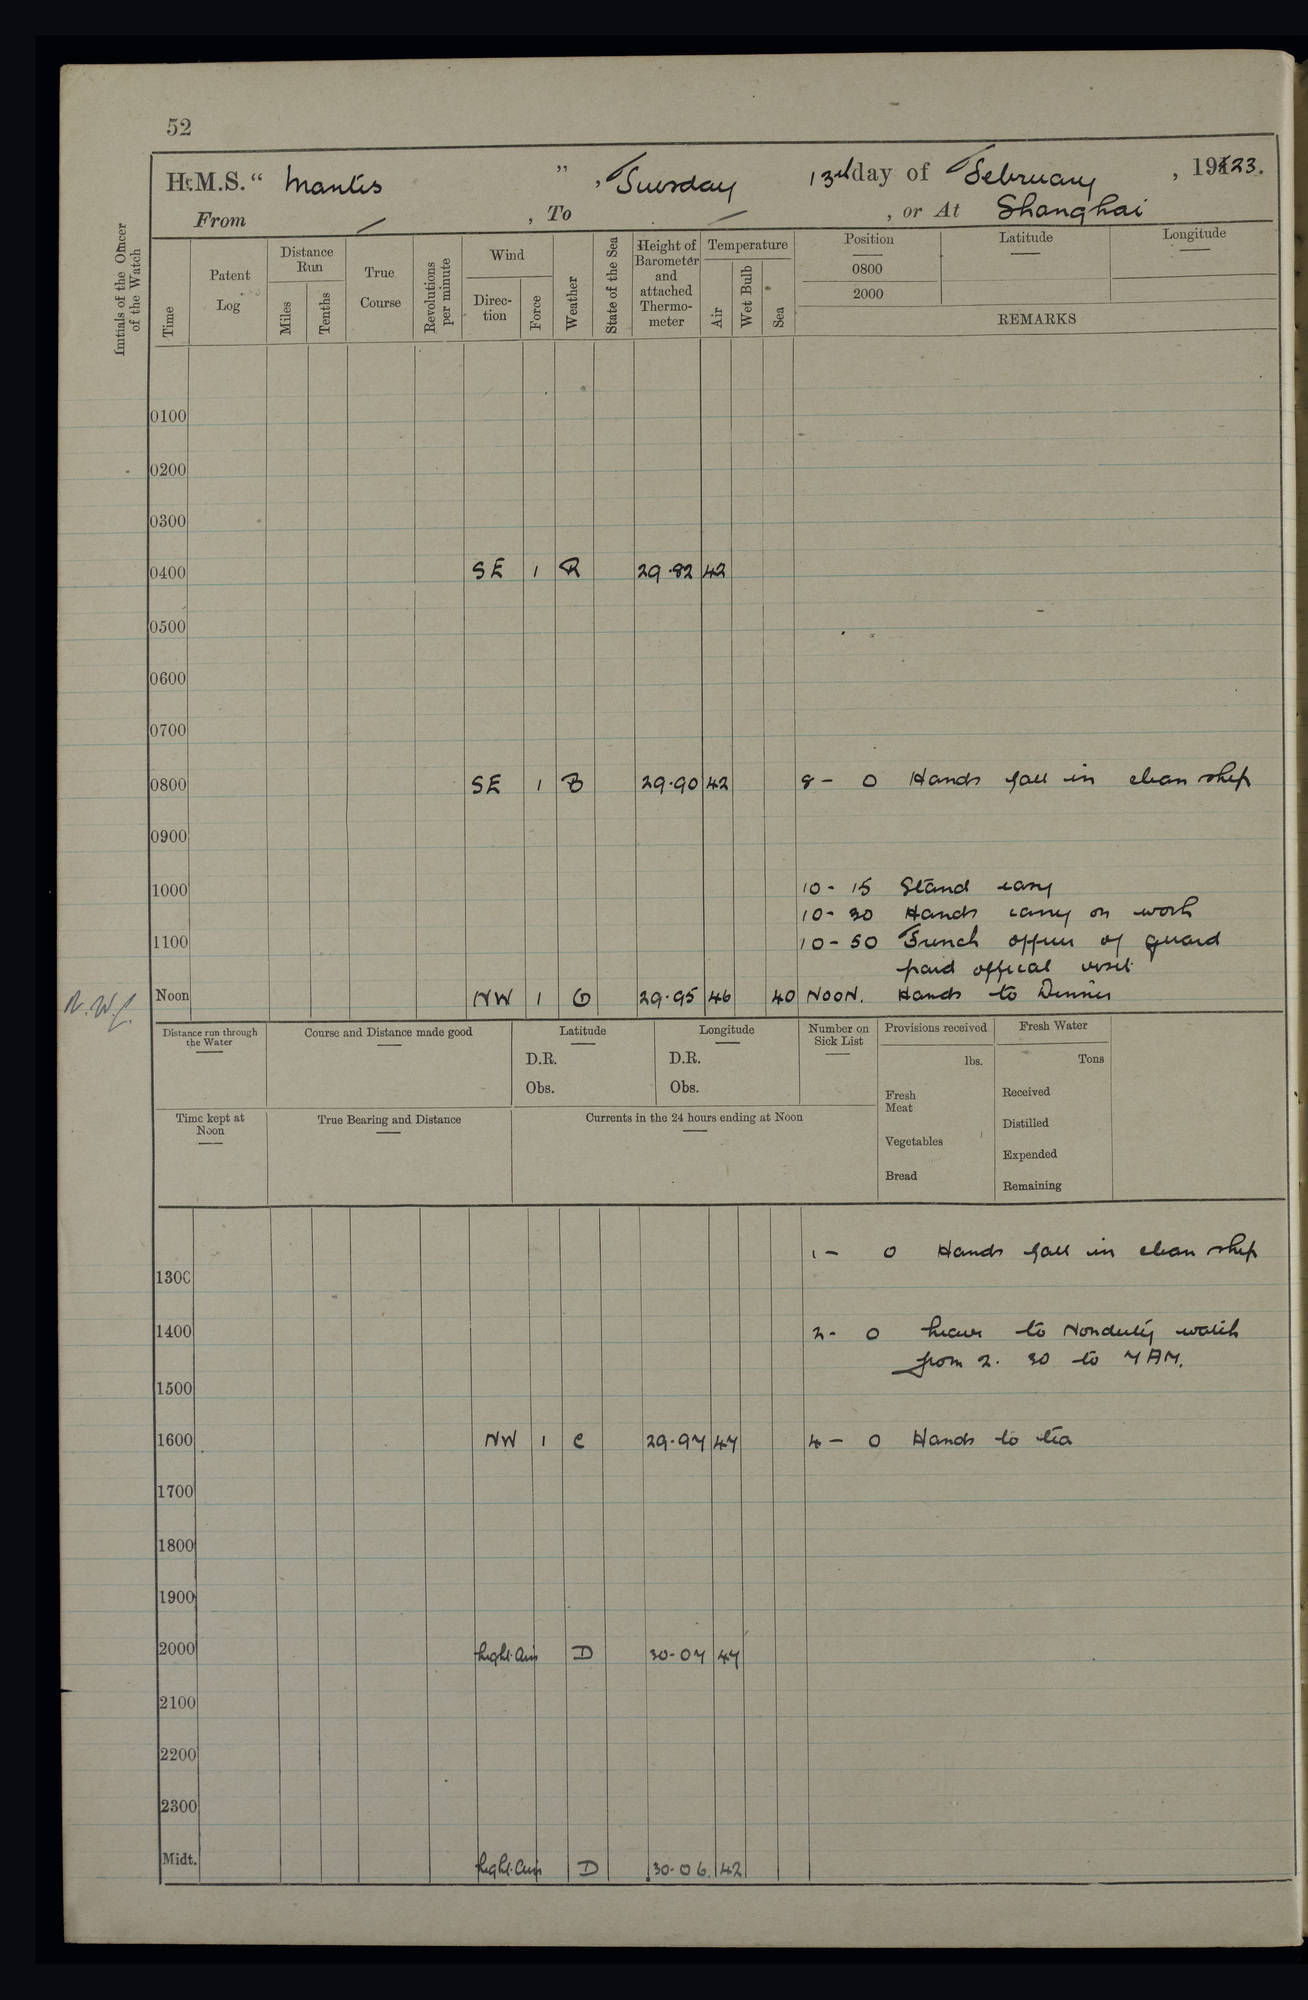 52
H.M.S. “ Mantis ”, Tuesday 13th day of February, 1923.
From / , To / , or At Shanghai
Initials of the Officer of the Watch
Time
Patent Log
Distance Run
Miles
Tenths
True Course
Revolutions per minute
Wind
Direc-tion
Force
Weather
State of the Sea
Height of Barometer and attached Thermo-meter
Temperature
Air
Wet Bulb
Sea
Position
0800
2000
Latitude
Longitude
REMARKS
0100
0200
0300
0400 SE 1 R 29.82 42
0500
0600
0700
0800 SE 1 B 29.90 42 8 - 0 Hands fall in clean ship
0900
1000 10 - 15 Stand easy
10 - 30 Hands carry on work
1100 10 - 50 French officer of guard
paid offical visit.
Noon NW 1 O 29.95 46 40 NOON. Hands to Dinner
Distance run through the Water
Course and Distance made good
Latitude
D.R.
Obs.
Longitude
D.R.
Obs.
Number on Sick List
Provisions received
lbs.
Fresh Meat
Vegetables
Bread
Fresh Water
Tons
Received
Distilled
Expended
Remaining
Time kept at Noon
True Bearing and Distance
Currents in the 24 hours ending at Noon
1 - 0 Hands fall in clean ship
1300
1400 2 - 0 Leave to Nonduty watch
from 2. 30 to 7 AM.
1500
1600 NW 1 C 29.97 47 4 - 0 Hands to tea
1700
1800
1900
2000 Light Airs D 30.07 47
2100
2200
2300
Midt. Light Airs D 30.06 42